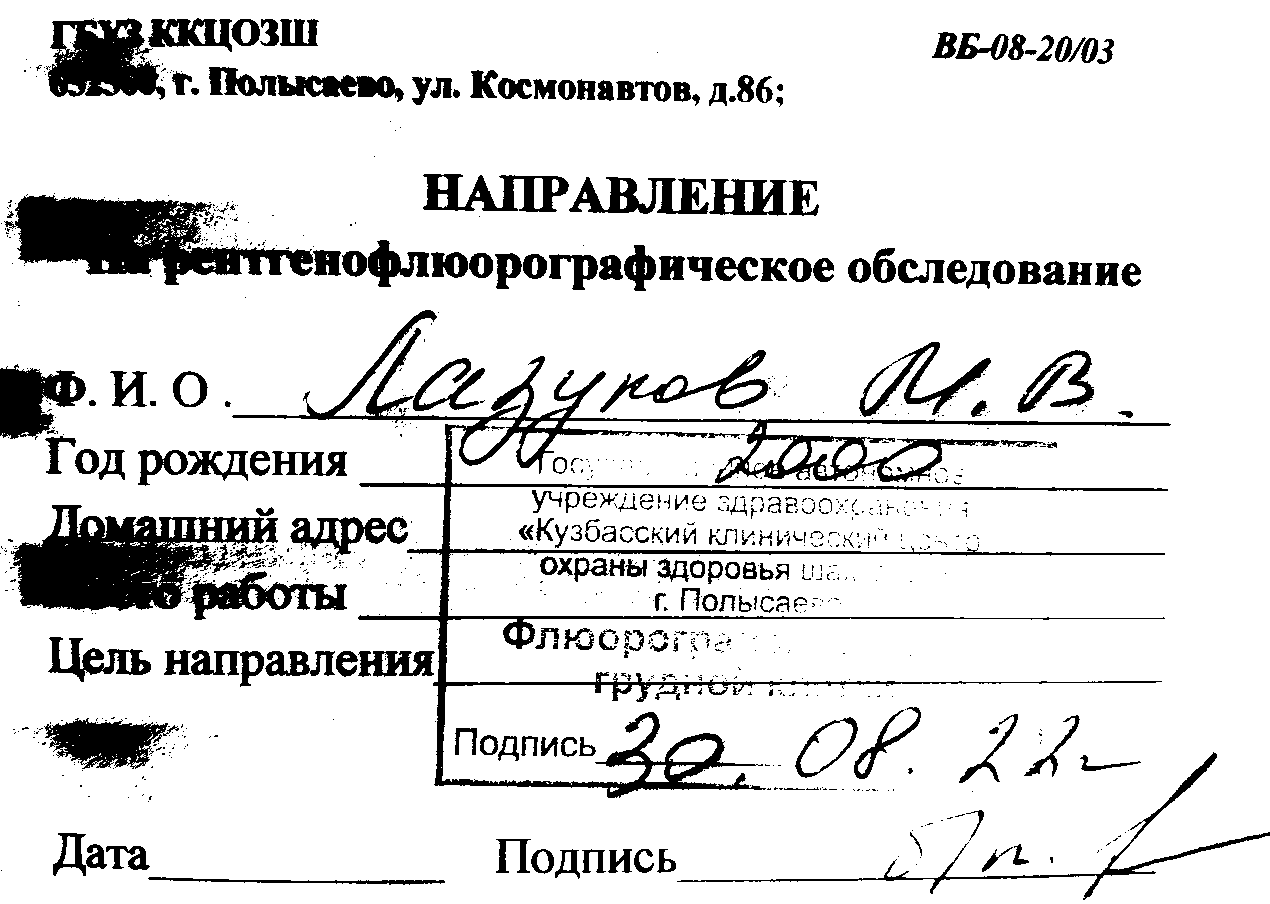 ГБУЗ ККЦОЗШ
ВБ-08-20/03
г. Полысаево, ул. Космонавтов, д.86;
НАПРАВЛЕНИЕ
на рентгенофлюорографическое обследование
Ф. И. О. Лазунов М. В.
Год рождения 2000
Домашний адрес
работы
Цель направления
автономное
учреждение здравоохранения
«Кузбасский клинический центр
охраны здоровья
г. Полысаево
грудной
Подпись 30. 08. 22г
Дата Подпись